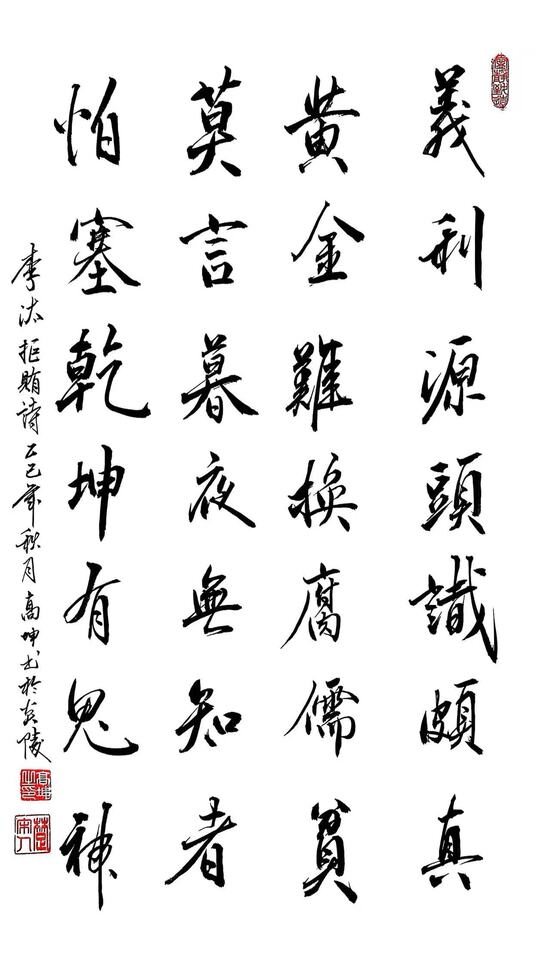 義利源頭識頗真
黄金難換腐儒貧
莫言暮夜無知者
怕塞乾坤有鬼神
李汰拒賄詩乙巳年秋月高坤书於炎陵